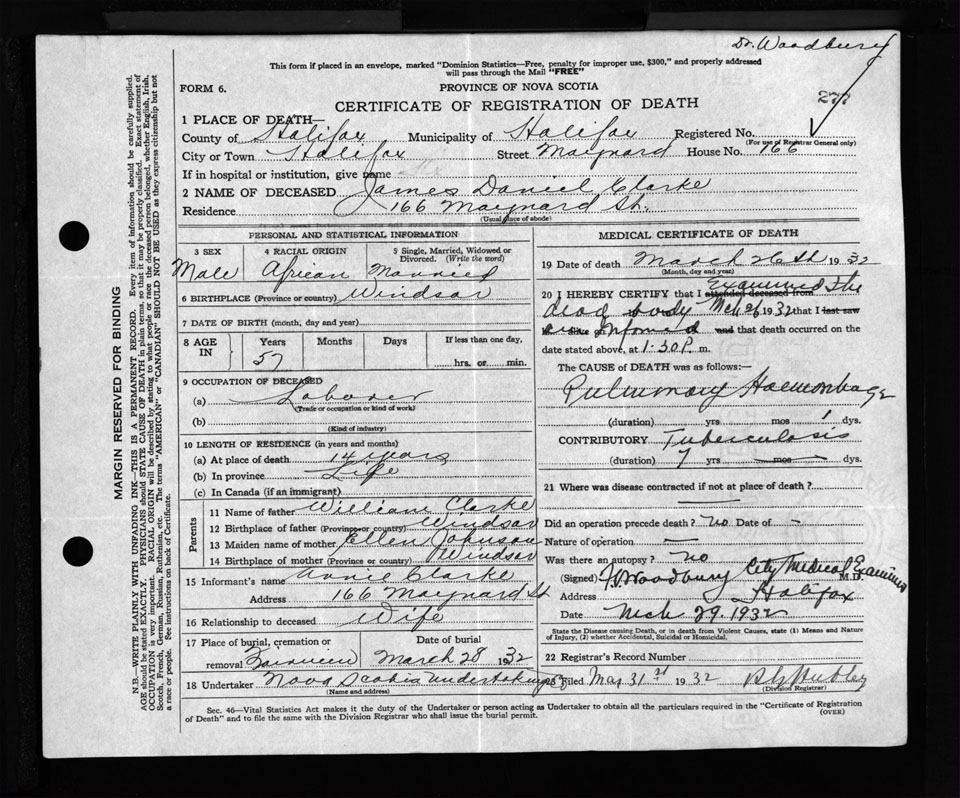 Dr. Woodbury
This form if placed in an envelope, marked "Dominion Statistics—Free, penalty for improper use, $300," and properly addressed
will pass through the Mail "FREE"
FORM 6.
PROVINCE OF NOVA SCOTIA
277
CERTIFICATE OF REGISTRATION OF DEATH
1 PLACE OF DEATH—
County of Halifax Municipality of Halifax Registered No.
(For use of Registrar General only)
City or Town Halifax Street Maynard House No. 166
If in hospital or institution, give name
2 NAME OF DECEASED James Daniel Clarke
Residence 166 Maynard St.
(Usual place of abode)
PERSONAL AND STATISTICAL INFORMATION
3 SEX 4 RACIAL ORIGIN 5 Single, Married, Widowed or Divorced. (Write the word)
Male African Married
6 BIRTHPLACE (Province or country) Windsor
7 DATE OF BIRTH (month, day and year)
8 AGE IN Years Months Days If less than one day,
57 hrs. or min.
9 OCCUPATION OF DECEASED
(a) Laborer
(Trade or occupation or kind of work)
(b)
(Kind of industry)
10 LENGTH OF RESIDENCE (in years and months)
(a) At place of death 14 years
(b) In province Life
(c) In Canada (if an immigrant)
Parents
11 Name of father William Clarke
12 Birthplace of father (Province or country) Windsor
13 Maiden name of mother Ellen Johnson
14 Birthplace of mother (Province or country) Windsor
15 Informant's name Annie Clarke
Address 166 Maynard St
16 Relationship to deceased Wife
17 Place of burial, cremation or Date of burial
removal Fairview March 28 1932
18 Undertaker Nova Scotia Undertaking Co
(Name and address)
MEDICAL CERTIFICATE OF DEATH
19 Date of death March 26th 1932
(Month, day and year)
20 I HEREBY CERTIFY that I attended deceased from Examined the
dead body Mch 26 1932 that I last saw
on Informed and that death occurred on the
date stated above, at 1:30 P. m.
The CAUSE of DEATH was as follows:—
Pulmonary Haemorrhage
(duration) yrs mos 1 dys.
CONTRIBUTORY Tuberculosis
(duration) 7 yrs mos dys.
21 Where was disease contracted if not at place of death?
Did an operation precede death? no Date of –
Nature of operation –
Was there an autopsy? no
(Signed) Woodbury City Medical Examiner M.D.
Address Halifax
Date Mch 29. 1932
State the Disease causing Death, or in death from Violent Causes, state (1) Means and Nature
of Injury, (2) whether Accidental, Suicidal or Homicidal.
22 Registrar's Record Number
23 Filed Mar 31st 1932 Hubley
(Division Registrar)
Sec. 46—Vital Statistics Act makes it the duty of the Undertaker or person acting as Undertaker to obtain all the particulars required in the "Certificate of Registration
of Death" and to file the same with the Division Registrar who shall issue the burial permit.
(OVER)
MARGIN RESERVED FOR BINDING
N.B.—WRITE PLAINLY WITH UNFADING INK—THIS IS A PERMANENT RECORD. Every item of information should be carefully supplied.
AGE should be stated EXACTLY. PHYSICIANS should STATE CAUSE OF DEATH in plain terms, so that it may be properly classified. Exact statement of
OCCUPATION is very important. RACIAL ORIGIN will be described by stating to what people or race the deceased person belonged, whether English, Irish,
Scotch, French, German, Russian, Ruthenian, etc. The terms "AMERICAN" or "CANADIAN" SHOULD NOT BE USED as they express citizenship but not
a race or people. See instructions on back of Certificate.